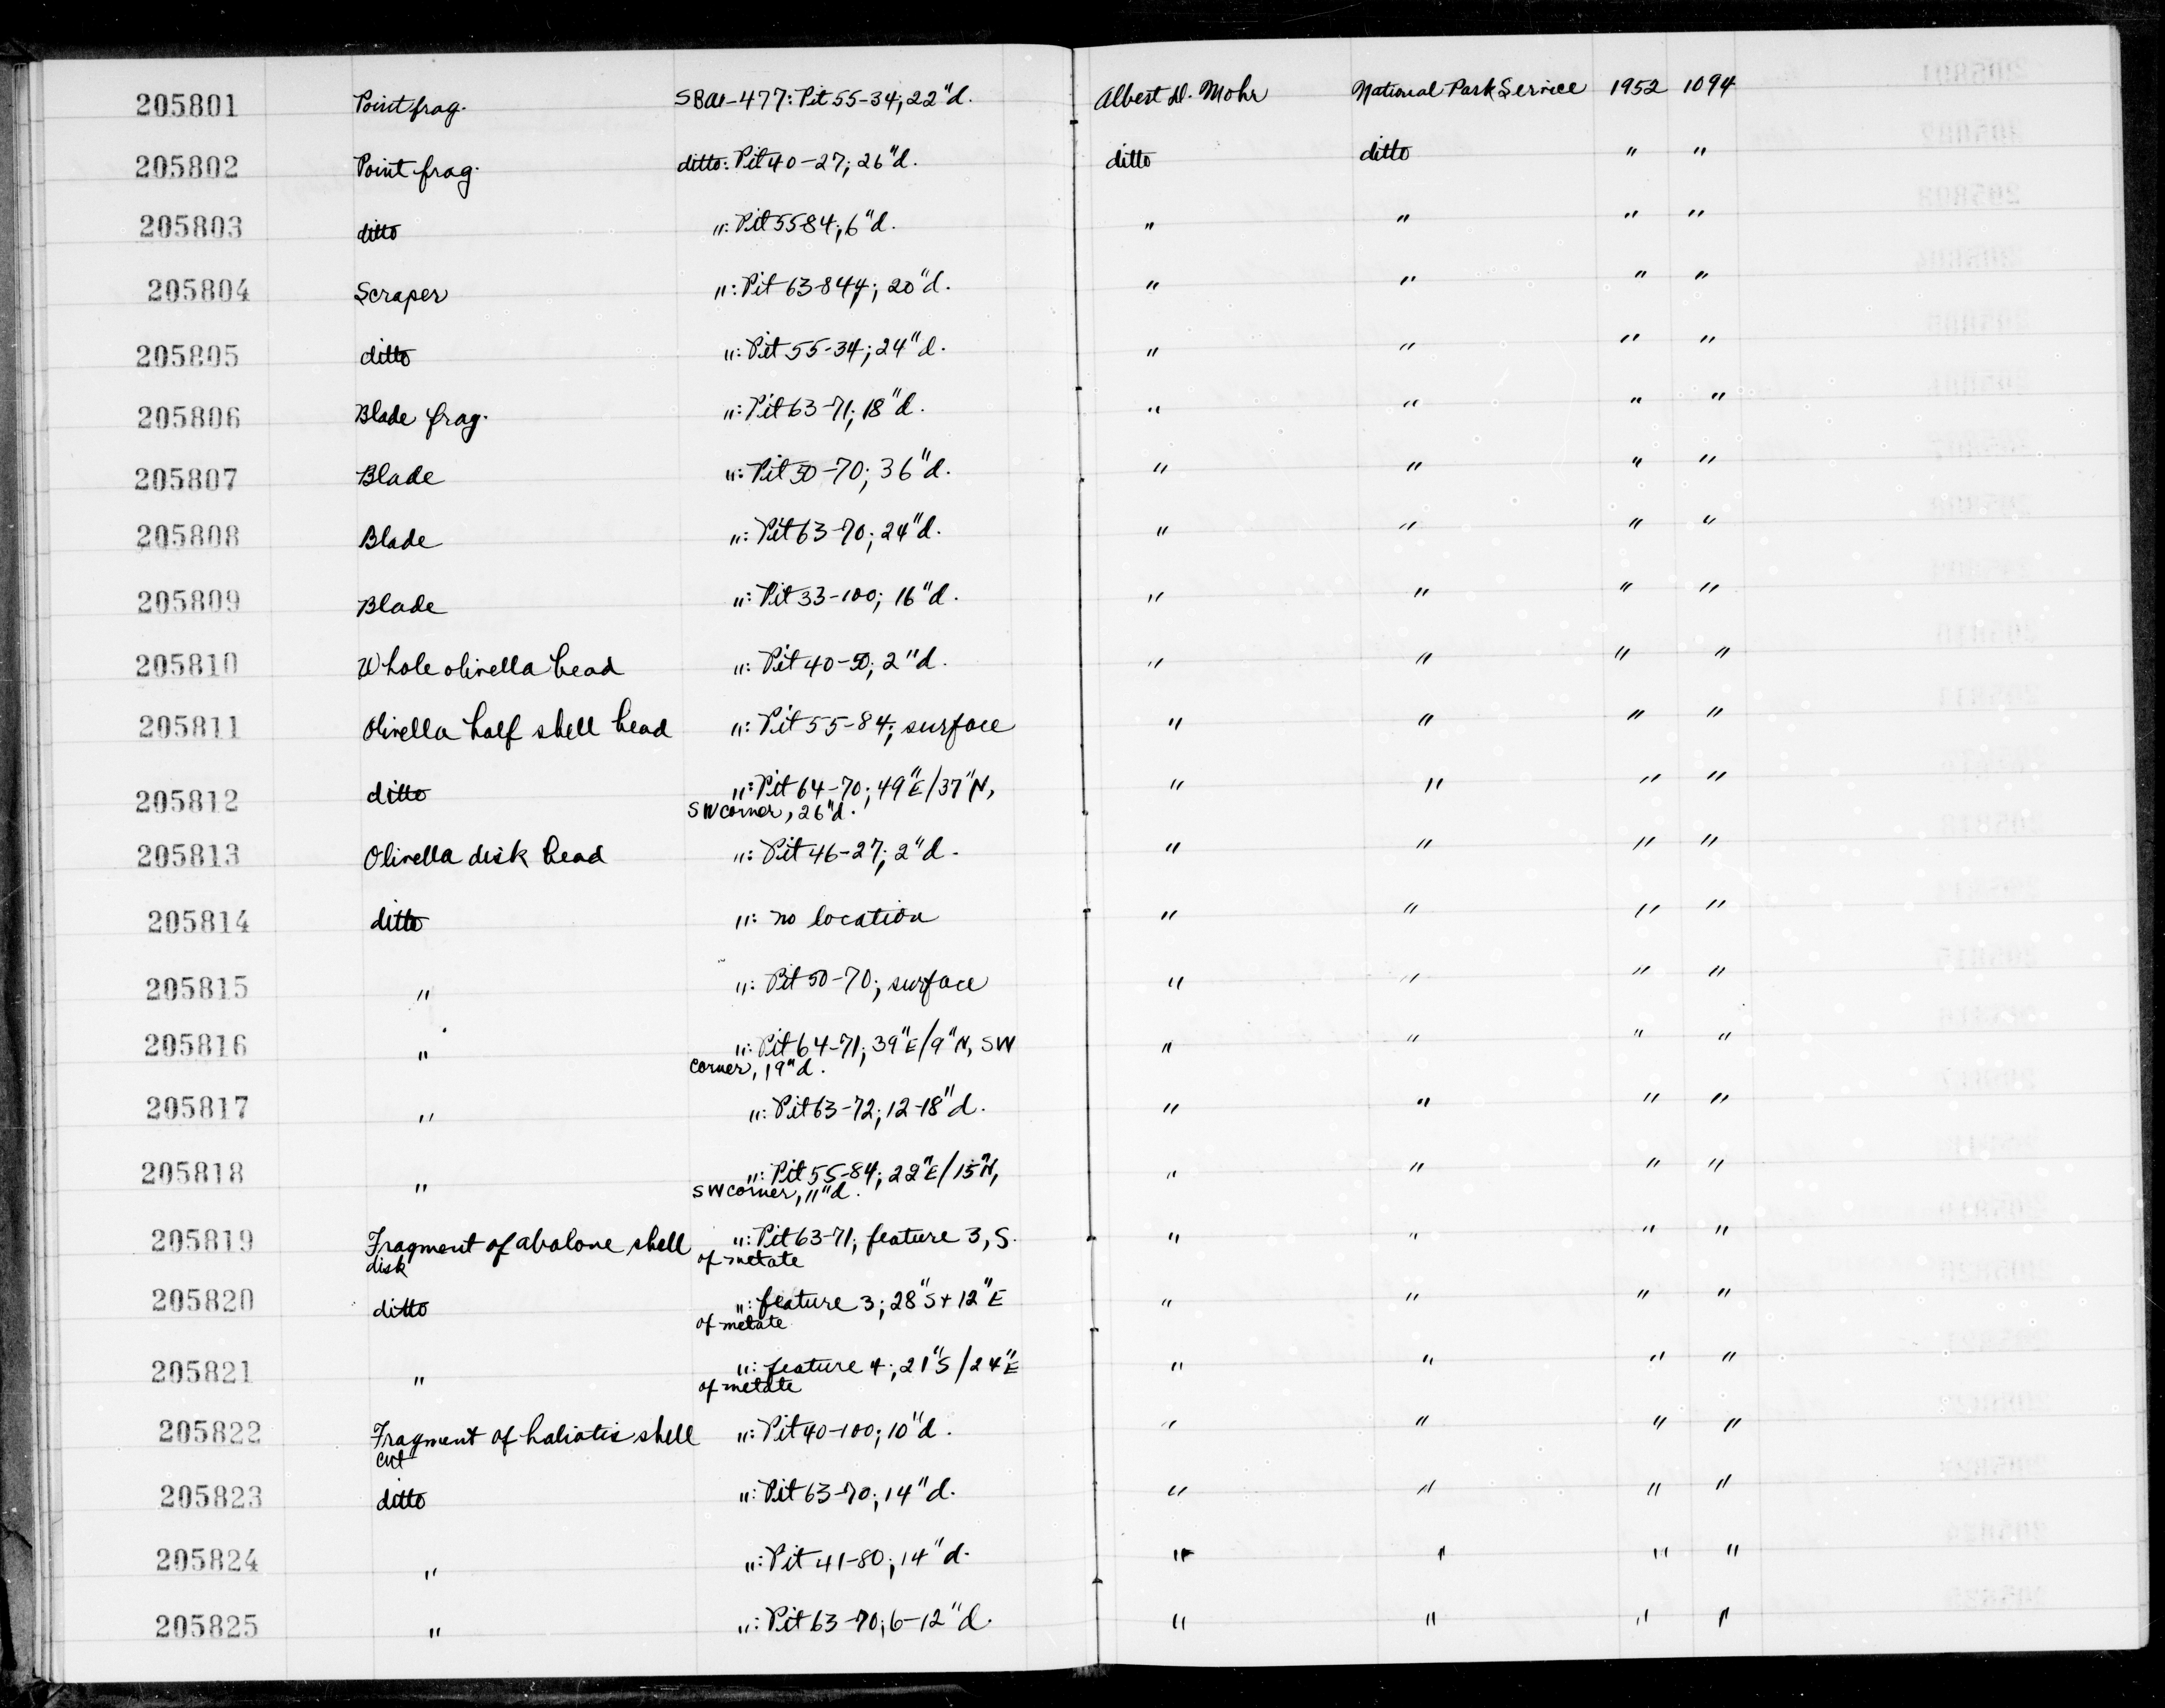 205801 Point frag. SBa-477: Pit 55-34; 22"d. Albert D. Mohr National Park Service 1952 1094
205802 Point frag. ditto: Pit 40-27; 26"d. ditto ditto " "
205803 ditto ": Pit 55-84; 6"d. " " " "
205804 Scraper ": Pit 63-84; 20"d. " " " "
205805 ditto ": Pit 55-34; 24"d. " " " "
205806 Blade frag. ": Pit 63-71; 18"d. " " " "
205807 Blade ": Pit 50-70; 36"d. " " " "
205808 Blade ": Pit 63-70; 24"d. " " " "
205809 Blade ": Pit 33-100; 16"d. " " " "
205810 Whole olivella bead ": Pit 40-50; 2"d. " " " "
205811 Olivella half shell bead ": Pit 55-84; surface " " " "
205812 ditto ": Pit 64-70; 49"E/37"N, " " " "
SW corner, 26"d.
205813 Olivella disk bead ": Pit 46-27; 2"d. " " " "
205814 ditto ": no location " " " "
205815 " ": Pit 50-70; surface " " " "
205816 " ": Pit 64-71; 39"E/9"N, SW " " " "
corner, 19"d.
205817 " ": Pit 63-72; 12-18"d. " " " "
205818 " ": Pit 55-84; 22"E/15"N, " " " "
SW corner, 11"d.
205819 Fragment of abalone shell ": Pit 63-71; feature 3, S. " " " "
disk of metate
205820 ditto ": feature 3; 28"S + 12"E " " " "
of metate
205821 " ": feature 4; 21"S/24"E " " " "
of metate
205822 Fragment of haliotis shell ": Pit 40-100; 10"d. " " " "
cut
205823 ditto ": Pit 63-70; 14"d. " " " "
205824 " ": Pit 41-80; 14"d. " " " "
205825 " ": Pit 63-70; 6-12"d. " " " "